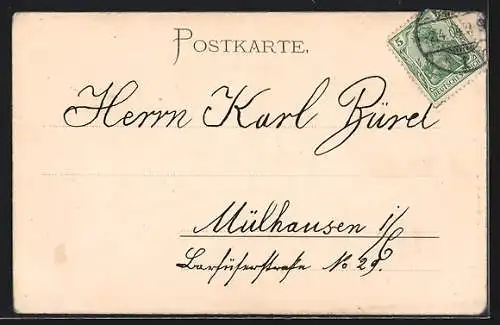 POSTKARTE.
5
DEUTSCHES
Herrn Karl Bürel
Mülhausen i/E
Barfüserstraße No 29.